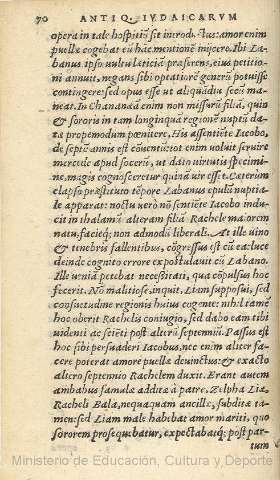 70 ANTIQ. IVDAICARVM
opera in tale hospitiũ sit introductus: amor enim
puellæ cogebat eũ hãc mentionẽ injicere. Ibi La-
banus ipso vultu lęticiã præferens, eius petitio-
ni annuit, negans sibi optatiorẽ generũ potuisse
contingere: sed opus esse ut aliquãdiu secũ ma-
neat. In Chananæã enim non missurũ filiã, quin
& sororis in tam longinquã regionẽ nuptũ da-
tæ propemodum pœnitere. His assentiẽte Iacobo,
de septẽ annis est cõuentũ: tot enim voluit seruire
mercede apud socerũ, ut dato uirtutis speci-
mine, magis cognosceretur quinã uir esset. Cæterum
elapso præstituto tẽpore Labanus epulũ nuptia-
le apparat: noctu uerò nõ sentiẽte Iacobo indu-
cit in thalamũ alteram filiã Rachele maiorem
natu, facieq; non admodũ liberali. At ille uino
& tenebris fallentibus, cõgressus est cũ ea: luce
deinde cognito errore expostulauit cũ Labano.
Ille ueniã petebat necessitati, qua cõpulsus hoc
fecerit. Nõ malitiose, inquit, Liam supposui, sed
consuetudine regionis huius cogente: nihil tamẽ
hoc oberit Rachelis coniugio, sed dabo eam tibi
uidenti ac sciẽti post alterũ septenniũ. Passus est
hoc sibi persuaderi Iacobus, nec enim aliter fa-
cere poterat amore puellæ deuinctus: & exacto
altero septennio Rachelem duxit. Erant autem
ambabus famulæ additæ à patre, Zelpha Liæ,
Racheli Bala, nequaquam ancillæ, subditæ ta-
men: sed Liam male habebat amor mariti, quo
sororem prosequebatur, expectabatq; post par-
tum
Ministerio de Educación, Cultura y Deporte